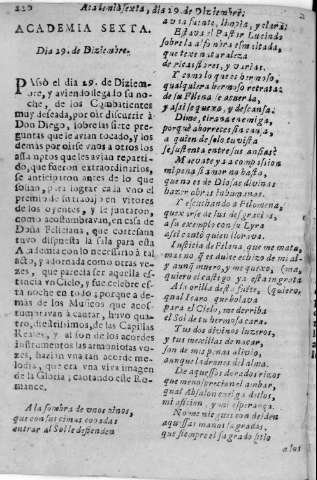 220 Academia sexta, dia 29. de Diziembre.
ACADEMIA SEXTA.
Dia 29. de Diziembre.
PAssò el dia 29. de Diziem-
bre, y aviendo llegado su no-
che, de los Combatientes
muy deseada, por oìr discurrir à
Don Diego, sobre las siete pregun-
tas que le avian tocado, y los
demàs por oirse vnos a otros los
assumptos que les avian reparti-
do, que fueron extraordinarios,
se anticiparon antes de lo que
solian, para lograr cada vno el
premio de su trabajo en vitores
de los oyentes, y se juntaron,
como acostumbravan, en casa de
Doña Feliciana, que cortesana
tuvo dispuesta la sala para esta
Academia con lo necessario à tal
acto, y adornada como otras ve-
zes, que parecia ser aquella es-
tancia vn Cielo, y fue celebre es-
ta noche en todo, porque a de-
màs de los Musicos que acos-
tumbravan à cantar, huvo qua-
tro, diestrissimos, de las Capillas
Reales, y al son de los acordes
instrumentos las armoniosas vo-
zes, hazian vna tan acorde me-
lodia, que era vna viva imagen
de la Gloria, cantando este Ro-
mance.
A la sombra de vnos olmos,
que con sus cimas copadas
entrar al Sol le defienden
a vna fuente, limpia, y clara:
Estava el Pastor Lucindo
sobre la alfombra esmaltada,
que texe naturaleza
de ricas flores, y varias.
Y como lo que es hermoso,
qualquiera hermoso retrata:
de su Filena se acuerda,
y assi le quexa, y descansa.
Dime, tirana enemiga,
porquè aborreces sin causa,
a quien de solo tu vista
se sustenta entre sus ansias?
Mueva te ya a compassion
mi pena
que no es de Diosas divinas
hazer obras inhumanas.
Y escuchando a Filomena,
quexarse de sus desgracias,
a su exemplo con su Lyra
assi cantò quien llorava.
Injusticia de Filena, que me mata,
mas no que es duice echizo de mi alma,
y aunque muero, y me quexo,
quiero el castigo ya està ingrata
A la orilla deste fuente, (quiero,
qual Icaro que bolava
para el Cielo, me derriba
el Sol de tu hermosa cara.
Tus dos divinos luzeros,
y tus mexillas de nacar,
son de mis penas alivio,
aunque ladrones del alma.
De aquessos dorados rizos
que menosprecian el ambar,
qual Absalon cuelga dellos,
mi aficion, y mi esperança.
No me nieguen ni defienden
aquessas manos sagradas,
que siempre el sagrado filo